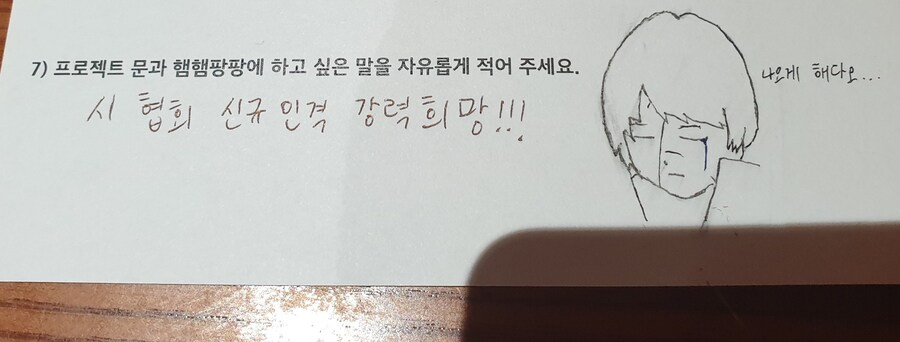 7) 프로젝트 문과 햄햄팡팡에 하고 싶은 말을 자유롭게 적어 주세요.
시 협회 신규인격 강력희망!!!
나오게 해다오...